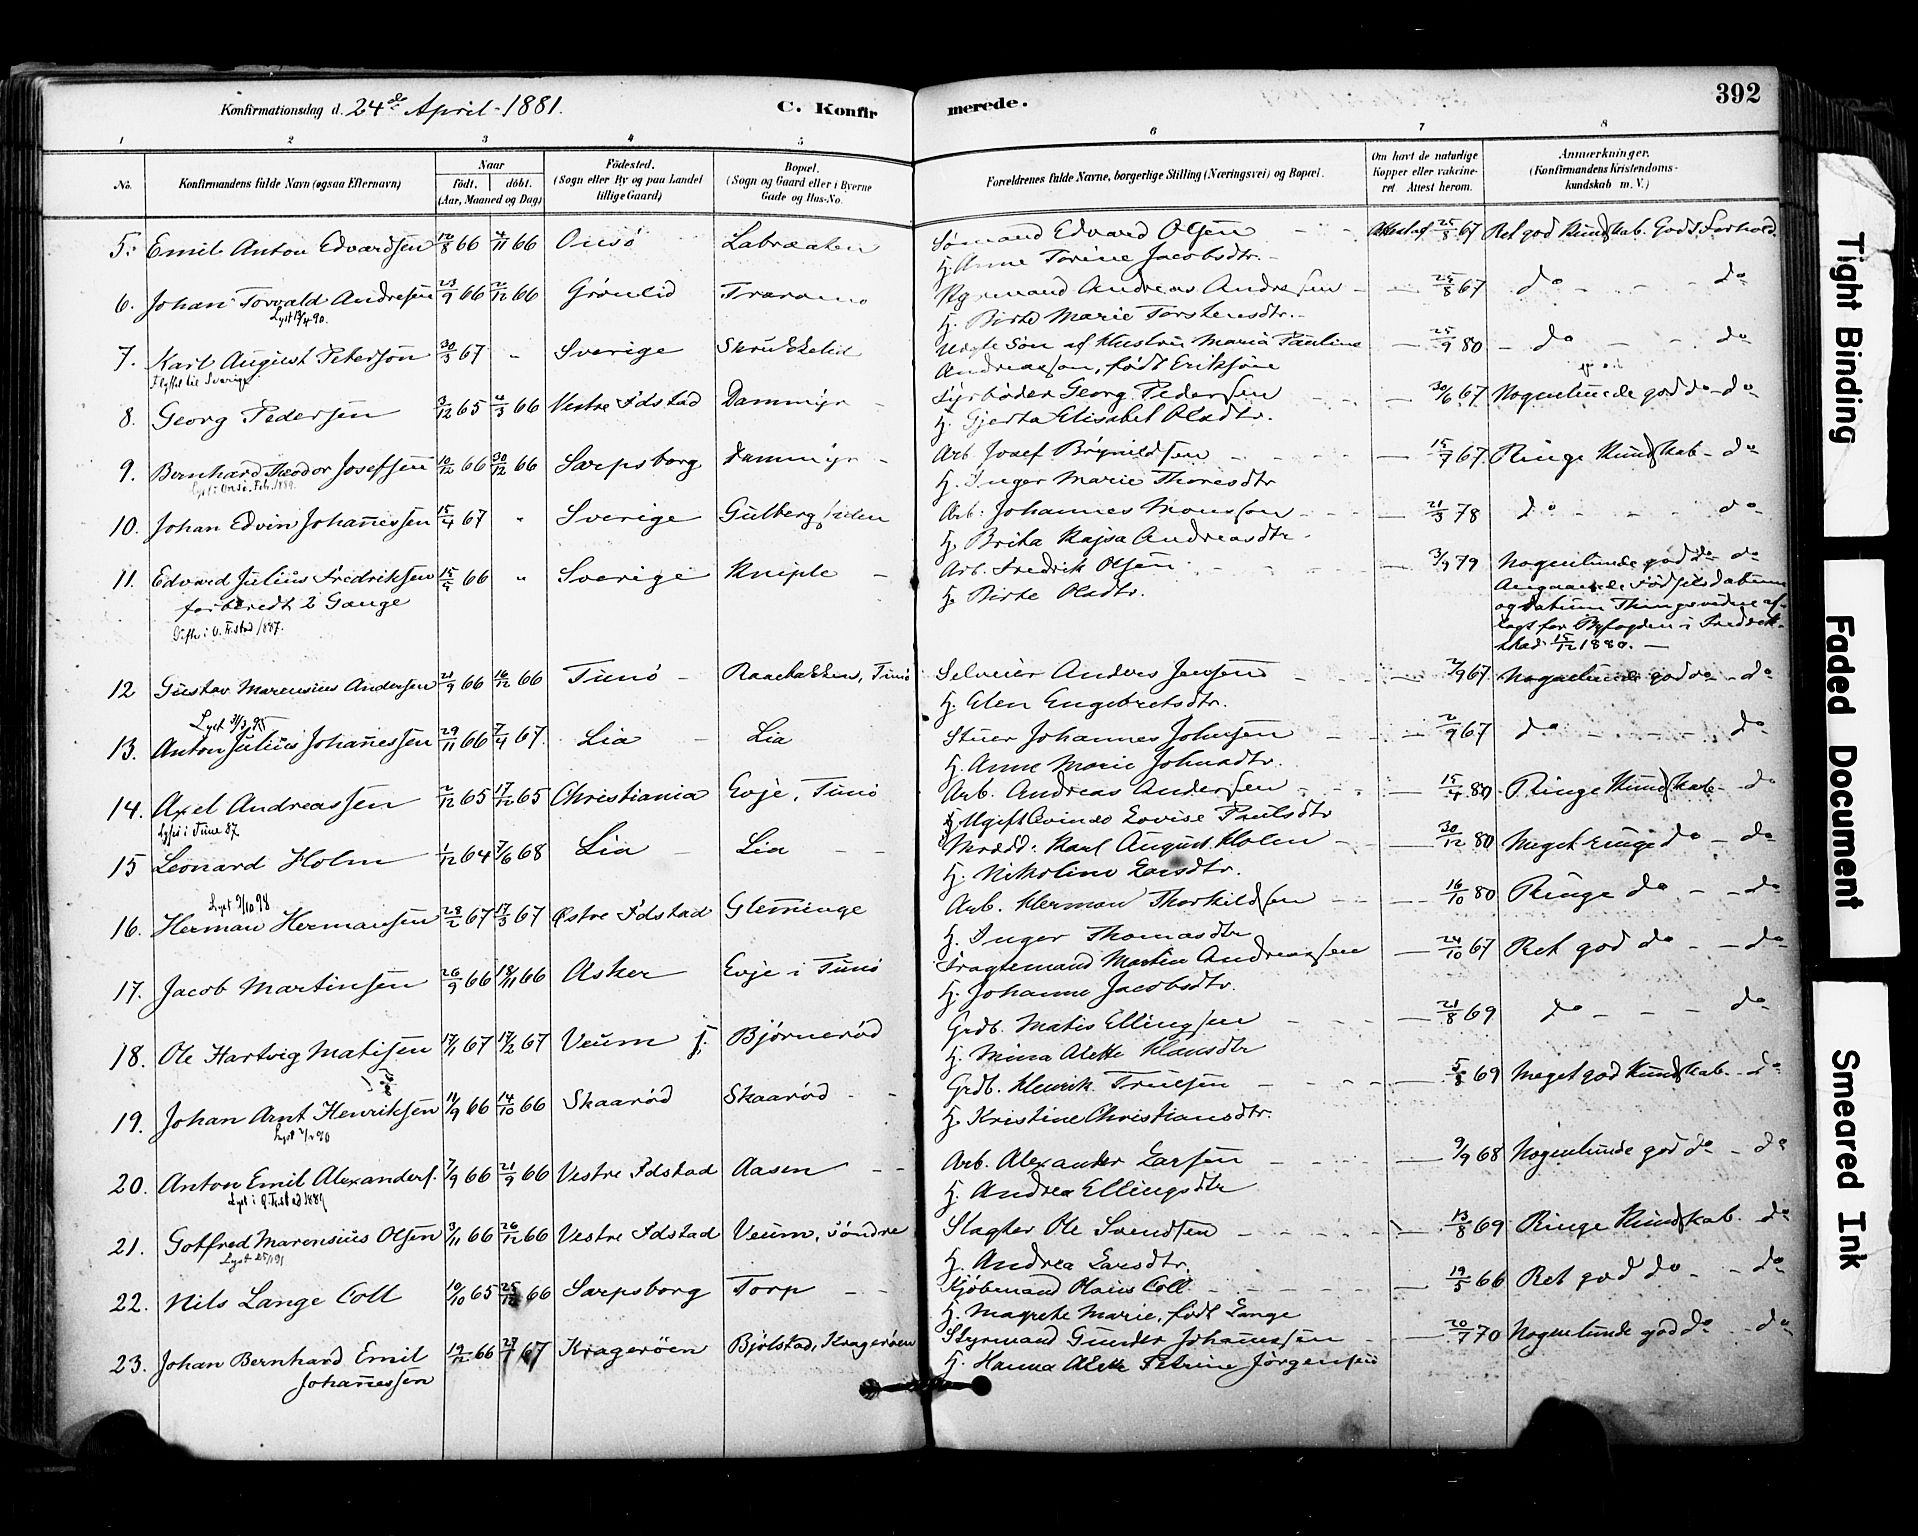 Konfirmationsdag d. 24de April 1881.
C. Konfirmerede.
392
1 2 3 4 5 6 7 8
No.
Konfirmandens fulde Navn (ogsaa Efternavn)
Naar
født. døbt.
(Aar, Maaned og Dag)
Fødested.
(Sogn eller By og paa Landet
tillige Gaard)
Bopæl.
(Sogn og Gaard eller i Byerne
Gade og Hus-No.
Forældrenes fulde Navne, borgerlige Stilling (Næringsvei) og Bopæl.
Om havt de naturlige
Kopper eller vakcine-
ret. Attest herom.
Anmærkninger.
(Konfirmandens Kristendoms-
kundskab m. V.)
5. Emil Anton Edvardsen 12/8 66 4/11 66 Onsø Labraaten Sømand Edvard Olsen Attest af 25/8 67 Ret god Kundskab. Godt Forhold.
H. Anne Torine Jacobsdtr.
6. Johan Torvald Andresen 23/9 66 2/12 66 Grønlid Andreas Andresen 25/8 67 do do
H. Birte Marie Torstensdtr.
7. Karl August Peterson 30/3 67 " Sverige Skrukkelid Uægte Søn af Hustru Maria Pauline 25/9 80 do do
Flyttet til Sverige
Andreasson, født Eriksson
8. Georg Pedersen 3/12 65 4/3 66 Vestre Fdstad Dammyr Fyrbøder Georg Pedersen 30/6 67 Nogenlunde god do do
H. Gjerta Elisabet Olsdtr.
9. Bernhard Theodor Josefsen 10/12 66 30/12 66 Sarpsborg Dammyr Arb. Josef Brynildsen 15/7 67 Ringe Kundskab do
H. Inger Marie Thoresdtr
10. Johan Edvin Johannessen 15/4 67 " Sverige Gulbergsiden Arb. Johannes Monsson 21/3 78 do do
H. Brita Kajsa Andreasdtr.
11. Edvard Julius Fredriksen 15/5 66 " Sverige Kniple Arb. Fredrik Olsen 3/9 79 Nogenlunde god do do
forberedt 2 Gange
H. Birte Olsdtr.
Angaaende Fødselsdatum
og datum Thingsvidne af-
lagt for Byfogden i Fredrik-
stad 15/12 1880.
12 Gustav Marensius Andersen 21/9 66 16/12 66 Tunø Raaebakken, Tunø Selveier Anders Jensen 2/9 67 Nogenlunde god do do
H. Elen Engebretsdtr.
Lyst 31/3 95
13. Anton Julius Johannessen 29/11 66 7/4 67 Lia Lia Stuer Johannes Johnsen 2/9 67 do do
H. Anne Marie Johnsdtr.
14. Axel Andreassen 2/12 65 17/12 65 Christiania Evje, Tunø Arb. Andreas Andersen 15/4 80 Ringe Kundskab do
Lyst i Tune 87
15 Leonard Holm 1/12 64 7/6 68 Lia Lia Karl August Holm 30/12 80 Meget ringe do do
H. Nikoline Larsdtr.
Lyst 9/10 98
16. Herman Hermansen 28/2 67 17/3 67 Østre Fdstad Glemminge Arb. Herman Thorkildsen 16/10 80 Ringe do do
H. Inger Thomasdtr
17. Jacob Martinsen 26/9 66 18/11 66 Asker Evje i Tunø Dragtemand Martin Andreassen 24/10 67 Ret god do do
H. Johanne Jacobsdtr.
18. Ole Hartvig Matisen 17/1 67 17/2 67 Veum Bjørnerød Grdb. Matis Ellingsen 21/8 69 do do
H. Mina Alette Klausdtr
19. Johan Arnt Henriksen 11/9 66 14/10 66 Skaarød Skaarød Grdb. Henrik Truesen 5/8 69 Meget god Kundskab. do
H. Kristine Christiansdtr.
20. Anton Emil Alexanders. 7/9 66 21/9 66 Vestre Fdstad Aasen Arb. Alexander Larsen 9/9 68 Nogenlunde god do do
H. Andrea Ellingsdtr
21. Gotfred Marensius Olsen 3/11 66 26/12 66 Vestre Fdstad Veum, Søndre Slagter Ole Svendsen 13/8 69 Ringe Kundskab. do
H. Andrea Larsdtr.
22. Nils Lange Coll 10/10 65 25/12 66 Sarpsborg Torp Kjøbmand Olaus Coll 19/5 66 Ret god do do
H. Magrete Marie, født Lange
23. Johan Bernhard Emil 19/12 66 27/1 67 Kragerøen Bjølstad, Kragerøen Styrmand Gunder Johannessen 20/7 70 Nogenlunde god do do
Johannessen
H. Hanna Alette Petrine Jørgensen
Tight Binding
Faded Document
Smeared Ink